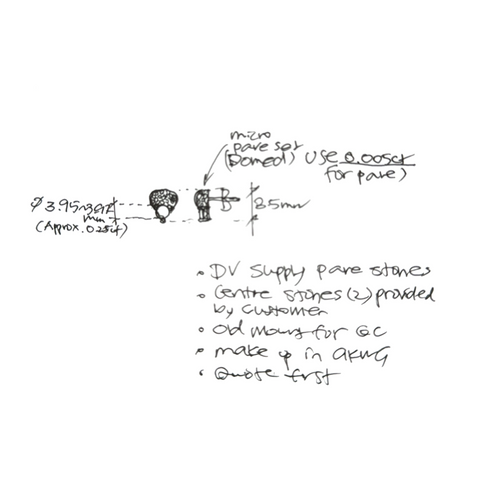 micro
pave set
(Domed) USE 0.005ct
for pave)
8.5mm
mm
(Approx. 0.25ct)
• DV supply pave stones
• Centre stones (2) provided
by customer
• Old mount for GC
• make up in 9KWG
• Quote first